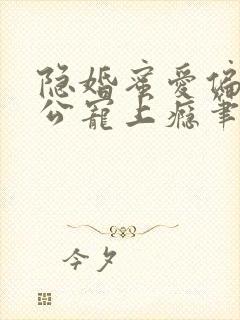 隐婚蜜爱偏
公宠上瘾笔
今夕